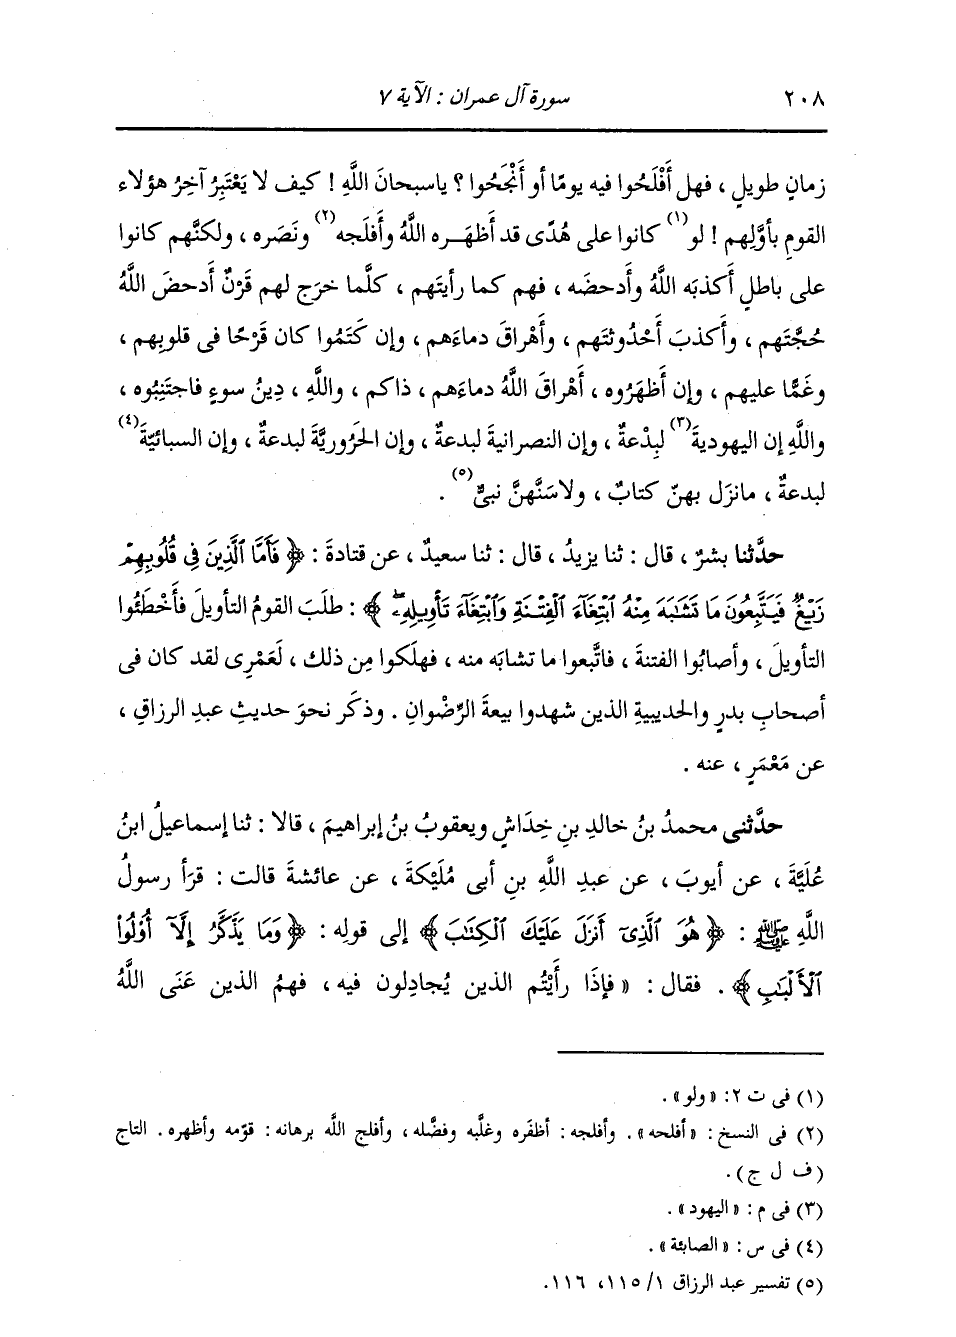 ٢٠٨ سورة آل عمران : الآية ٧
زمانٍ طويلٍ ، فهل أَفْلَحُوا فيه يومًا أو أَنْجَحُوا ؟ ياسبحانَ اللَّهِ ! كيف لا يَعْتَبِرُ آخِرُ هؤلاء
القومِ بأوَّلِهم ! لو(١) كانوا على هُدًى قد أظهَره اللَّهُ وأفلَجه(٢) ونَصَره ، ولكنَّهم كانوا
على باطلٍ أَكذبَه اللَّهُ وأَدحضَه ، فهم كما رأيتَهم ، كلَّما خرَج لهم قَرْنٌ أَدحضَ اللَّهُ
حُجَّتَهم ، وأَكذبَ أُحْدُوثتَهم ، وأَهْراقَ دماءَهم ، وإن كَتَمُوا كان قَرْحًا فى قلوبِهم ،
وغَمًّا عليهم ، وإن أَظهَرُوه ، أَهْراقَ اللَّهُ دماءَهم ، ذاكم ، واللَّهِ ، دِينُ سوءٍ فاجتَنِبُوه ،
واللَّهِ إن اليهوديةَ(٣) لبِدْعةٌ ، وإن النصرانيةَ لبدعةٌ ، وإن الحَرُوريَّةَ لبدعةٌ ، وإن السبائيّةَ(٤)
لبدعةٌ ، مانزَل بهنّ كتابٌ ، ولاسَنَّهنَّ نبىٌّ(٥) .
حدَّثنا بشرٌ ، قال : ثنا يزيدُ ، قال : ثنا سعيدٌ ، عن قتادةَ : ﴿ فَأَمَّا ٱلَّذِينَ فِى قُلُوبِهِمْ
زَيْغٌ فَيَتَّبِعُونَ مَا تَشَٰبَهَ مِنْهُ ٱبْتِغَآءَ ٱلْفِتْنَةِ وَٱبْتِغَآءَ تَأْوِيلِهِۦۖ ﴾ : طلَبَ القومُ التأويلَ فأَخْطَئُوا
التأويلَ ، وأصابُوا الفتنةَ ، فاتَّبعوا ما تشابَه منه ، فهلَكوا مِن ذلك ، لَعَمْرِى لقد كان فى
أصحابِ بدرٍ والحديبيةِ الذين شهدوا بيعةَ الرِّضْوانِ . وذكَر نحوَ حديثِ عبدِ الرزاقِ ،
عن مَعْمَرٍ ، عنه .
حدَّثنى محمدُ بنُ خالدِ بنِ خِدَاشٍ ويعقوبُ بنُ إبراهيمَ ، قالا : ثنا إسماعيلُ ابنُ
عُلَيَّةَ ، عن أيوبَ ، عن عبدِ اللَّهِ بنِ أبى مُلَيْكةَ ، عن عائشةَ قالت : قرَأ رسولُ
اللَّهِ ﷺ : ﴿ هُوَ ٱلَّذِىٓ أَنزَلَ عَلَيْكَ ٱلْكِتَٰبَ ﴾ إلى قولِه : ﴿ وَمَا يَذَّكَّرُ إِلَّآ أُوْلُوا۟
ٱلْأَلْبَٰبِ ﴾ . فقال : « فإذَا رأَيْتُم الذين يُجادِلون فيه ، فهمُ الذين عَنَى اللَّهُ
(١) فى ت ٢: «ولو» .
(٢) فى النسخ : «أفلحه» . وأفلجه : أظفره وغلَّبه وفضَّله ، وأفلج اللَّه برهانه : قوّمه وأظهره . التاج
(ف ل ج) .
(٣) فى م : «اليهود» .
(٤) فى س : «الصابئة» .
(٥) تفسير عبد الرزاق ١/ ١١٥، ١١٦.